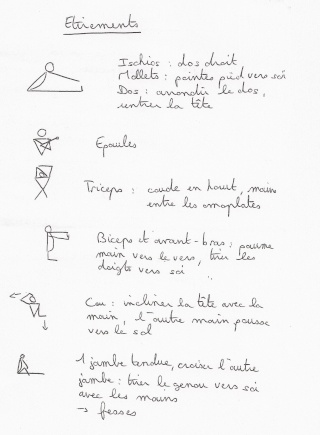 Etirements
Ischios : dos droit
Mollets : pointes pied vers soi
Dos : arrondir le dos,
rentrer la tête
Epaules
Triceps : coude en haut, main
entre les omoplates
Biceps et avant-bras : paume
main vers le vers, tirer les
doigts vers soi
Cou : incliner la tête avec la
main, l'autre main pousse
vers le sol
1 jambe tendue, croiser l'autre
jambe : tirer le genou vers soi
avec les mains
→ fesses